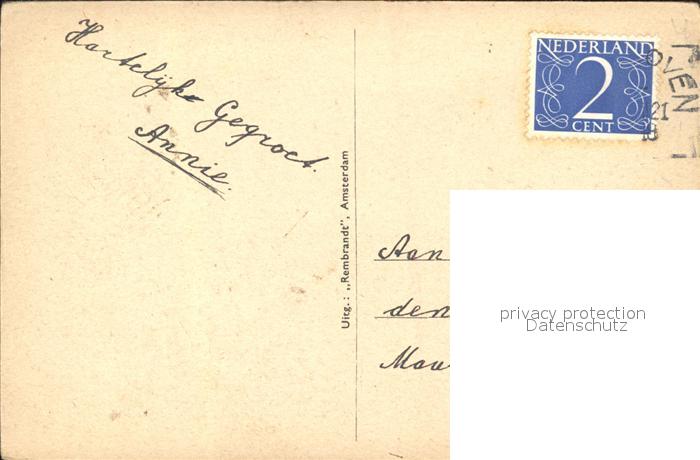 Hartelijke Gegroet.
Annie.
Uitg.: „Rembrandt", Amsterdam
NEDERLAND
2
CENT
OVEN
21
18
Aan
den
privacy protection
Datenschutz